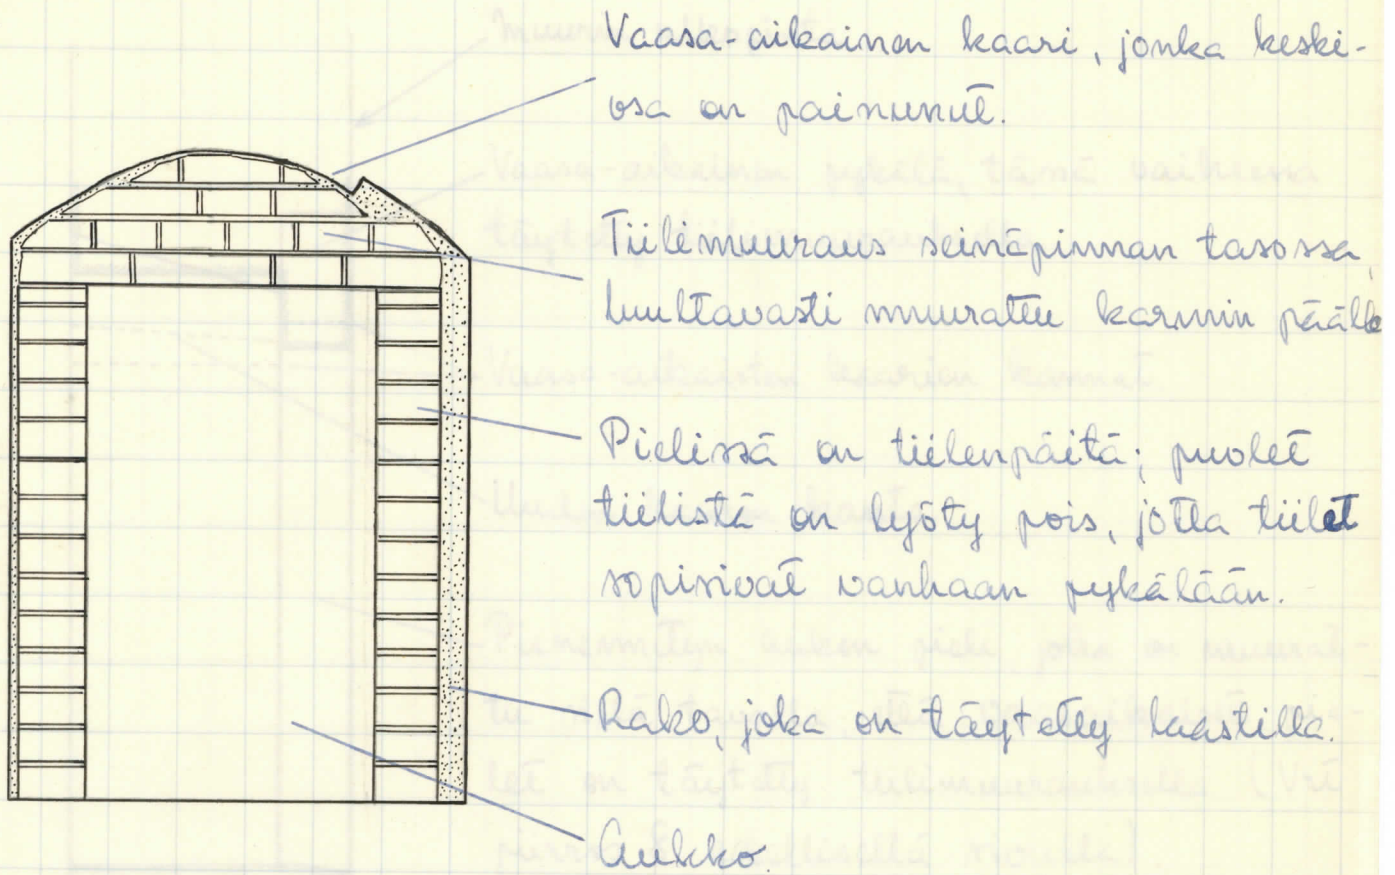 Vaasa-aikainen kaari, jonka keski-
osa on painunut.
Tiilimuuraus seinäpinnan tasossa,
luultavasti muurattu karmin päälle
Pielissä on tiilenpäitä; puolet
tiilistä on lyöty pois, jotta tiilet
sopisivat vanhaan pykälään.
Rako, joka on täytetty laastilla.
Aukko.